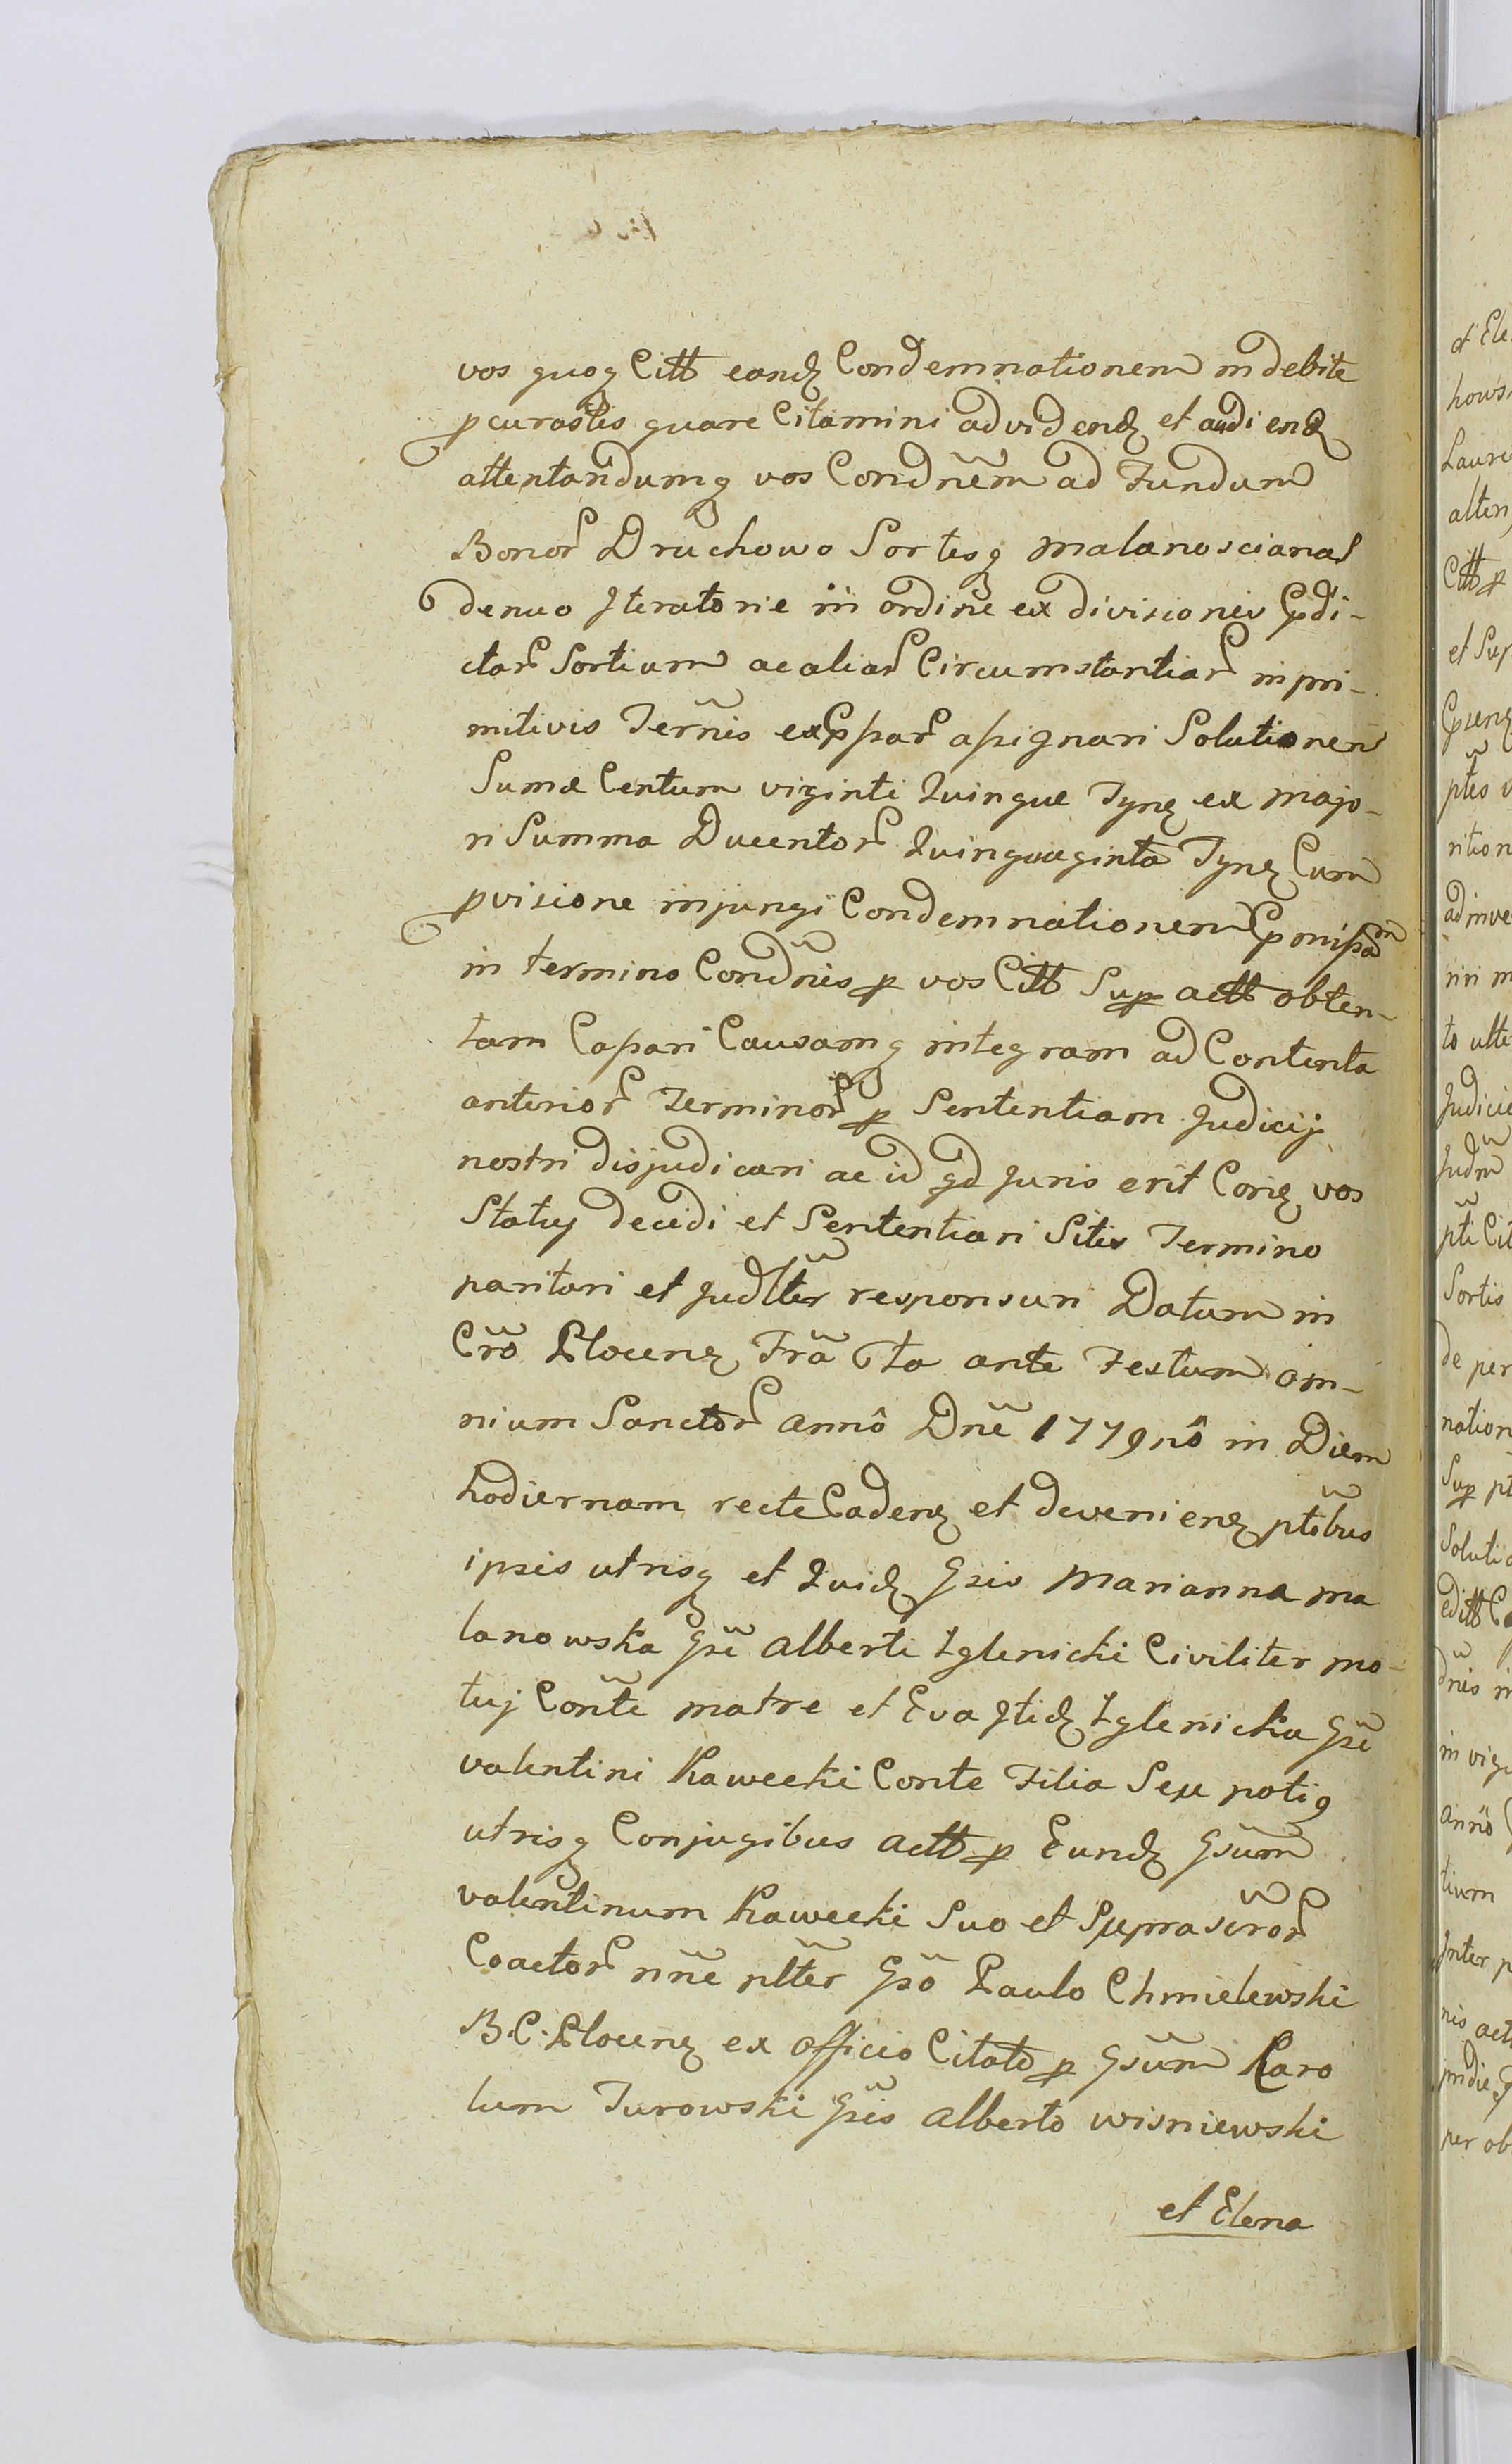 vos quoq Citt eand Condemnationem indebite
pcurastis quare Citamini ad vidend et audiend
attentandumq vos Condnem ad Fundum
Bonor Druchowo Sortesq Malanoscianas
denuo Iteratorie in ordine ex divisionis Pdi-
ctar Sortium ac aliar Circumstantiar in pri-
mitivis Ternis expssar assignari Solutionem
Sumæ Centum viginti Quinque Tynf ex majo-
ri Summa Ducentor Quinquaginta Tynf Cum
pvisione injungi Condemnationem Pmissam
in termino Condnis p vos Citt Sup actt obten-
tam Cassari Causamq integram ad Contenta
anterior Terminor p Sententiam Judicij
nostri disjudicari ac id qd Juris erit Corñ vos
Statuj decidi et Sententiari Sitis Termino
parituri et Judltter responsuri Datum in
Cro Plocen Fra 6ta ante Festum om-
nium Sanctor anno Dne 1779no in Diem
hodiernam recte Caden et devenien ptibus
ipsis utrisq et Quid Gsis Marianna Ma
lanowska Gsi Alberti Zglenicki Civiliter mo-
tuj Conte matre et Eva Itid Zglenicka Gsi
Valentini Kawecki Conte Filia Seu potiq
utrisq Conjugibus actt p Eund Gsum
Valentinum Kawecki Suo et Suprascror
Coactor nne pltter Gso Paulo Chmielewski
B. C. Plocen ex officio Citato p Gsum Karo
lum Turowski Gsis Alberto Wisniewski
et Elena